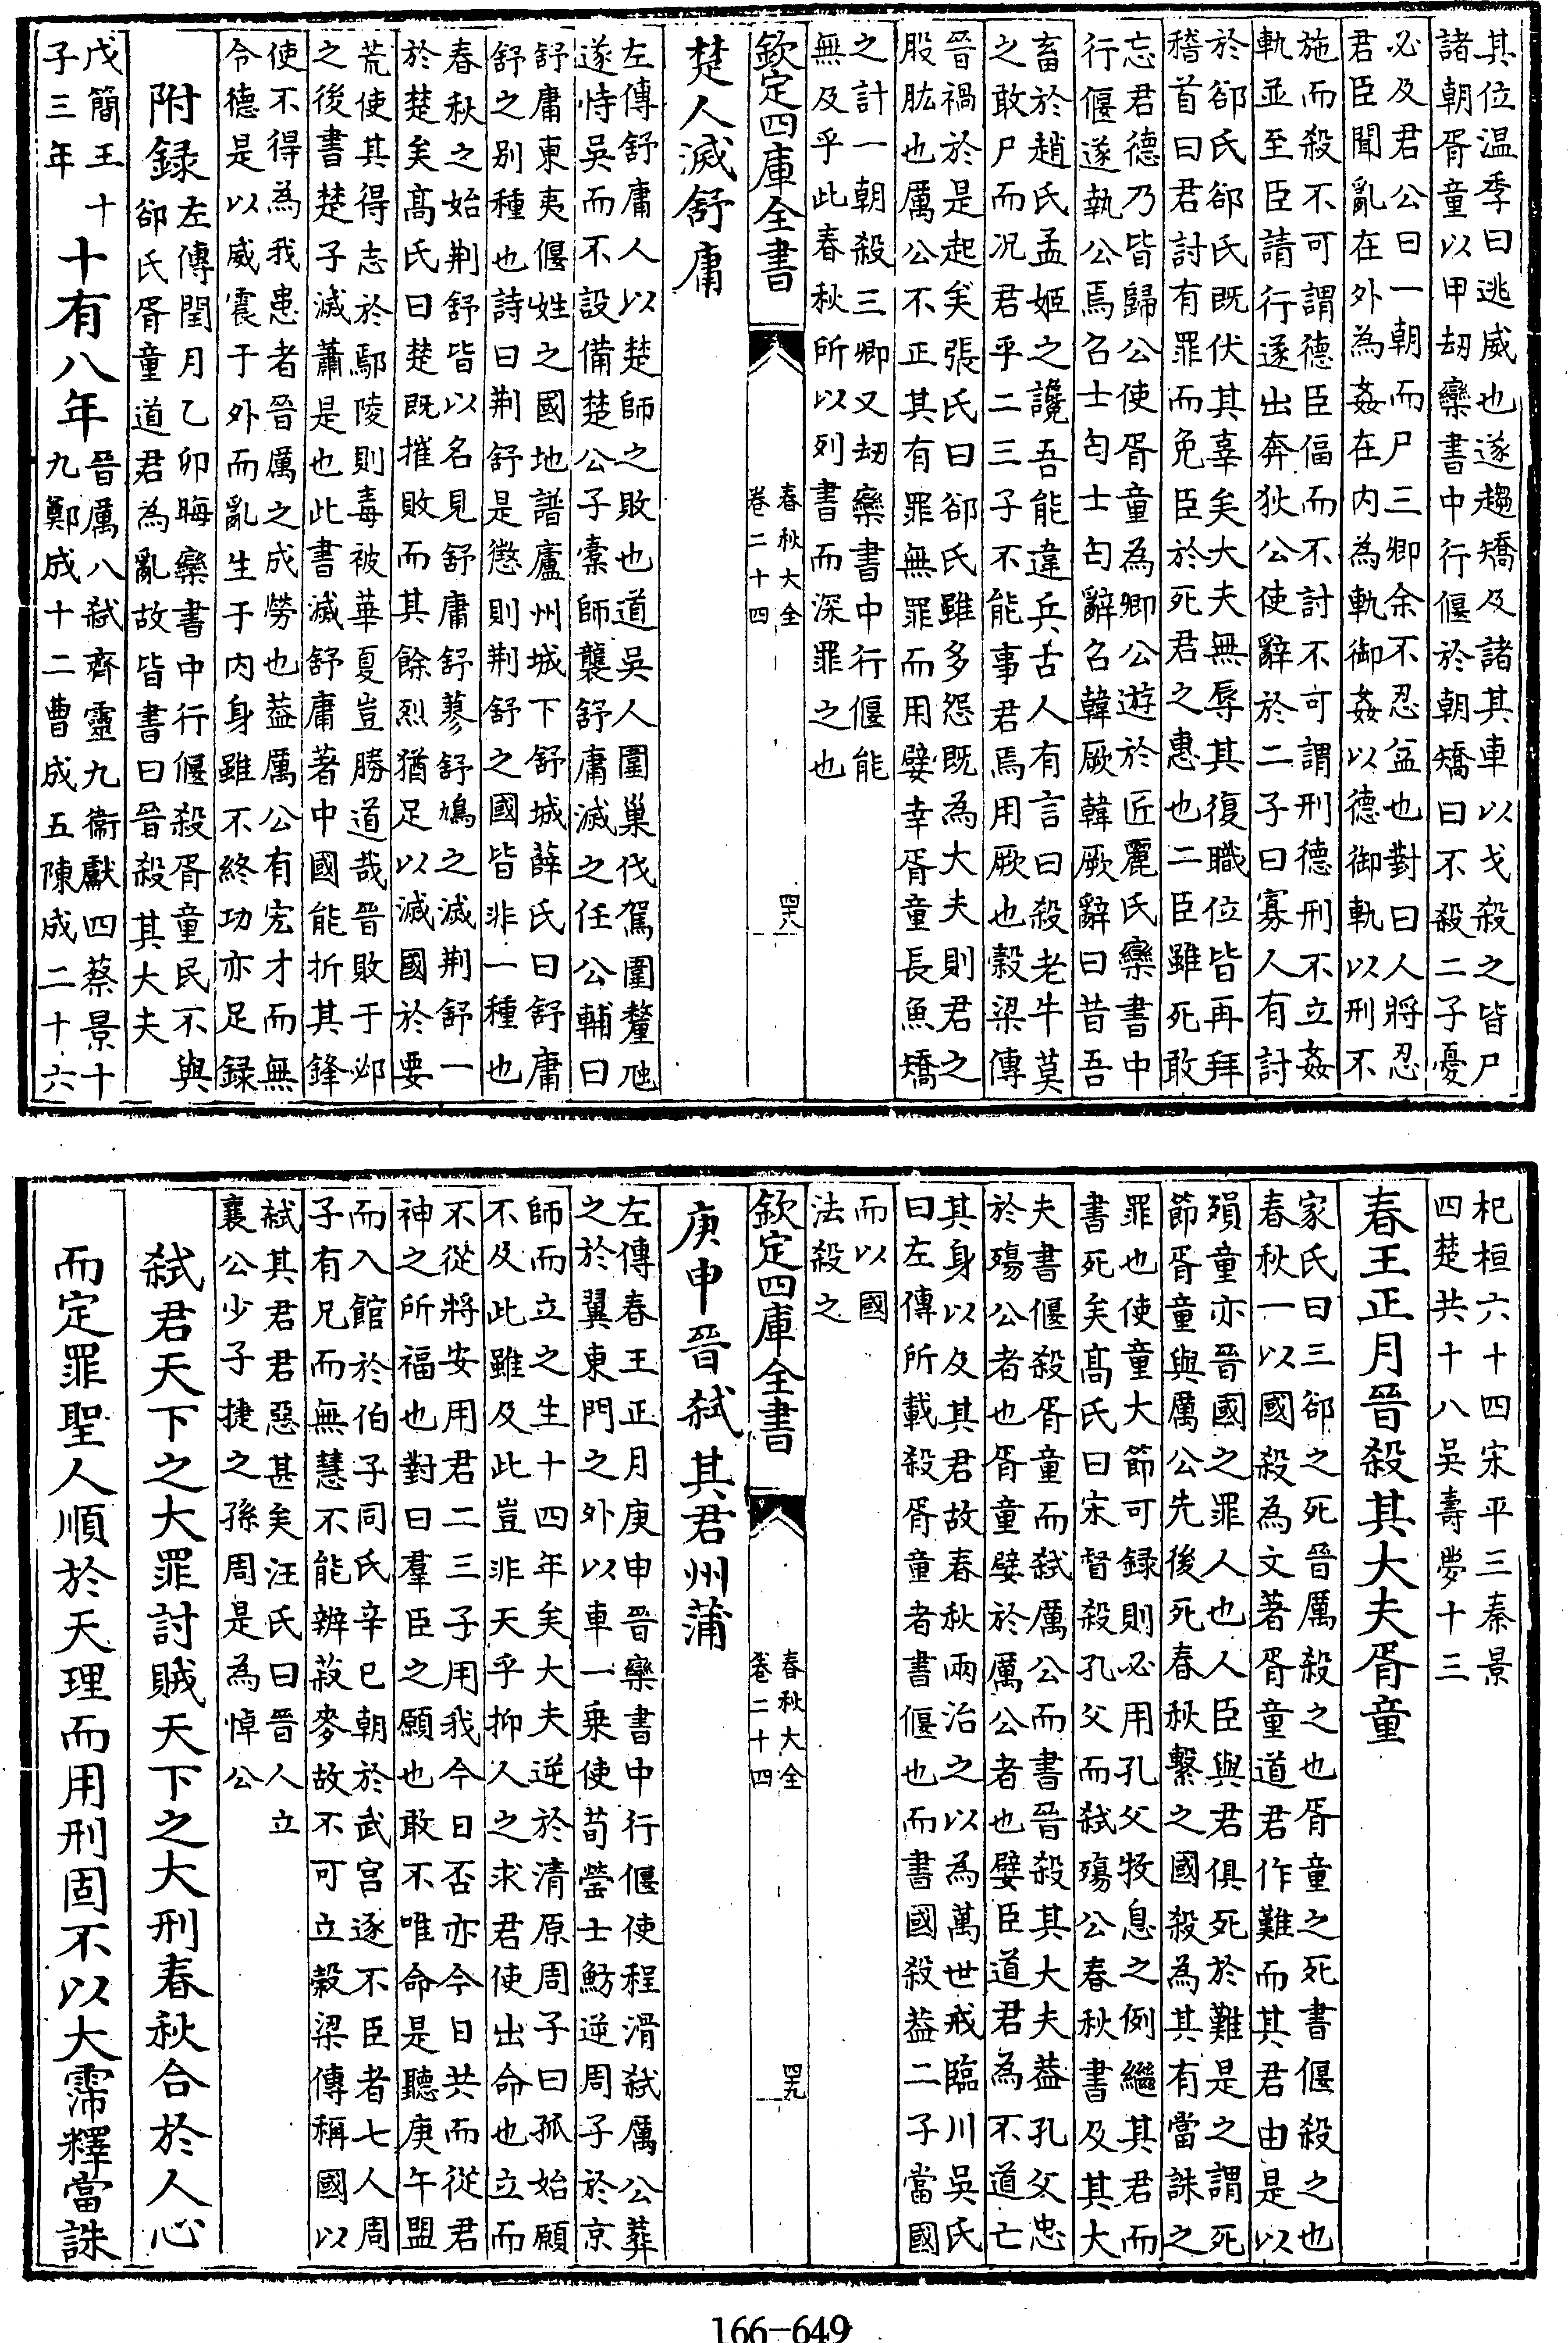 其位温季曰逃威也遂趨矯及諸其車以戈殺之皆尸
諸朝胥童以甲刼欒書中行偃於朝矯曰不殺二子憂
必及君公曰一朝而尸三卿余不忍益也對曰人將忍
君臣聞亂在外為姦在内為軌御姦以德御軌以刑不
施而殺不可謂德臣偪而不討不可謂刑德刑不立姦
軌並至臣請行遂出奔狄公使辭於二子曰寡人有討
於郤氏郤氏既伏其辜矣大夫無辱其復職位皆再拜
稽首曰君討有罪而免臣於死君之惠也二臣雖死敢
忘君德乃皆歸公使胥童為卿公遊於匠麗氏欒書中
行偃遂執公焉召士匄士匄辭召韓厥韓厥辭曰昔吾
畜於趙氏孟姬之讒吾能違兵古人有言曰殺老牛莫
之敢尸而况君乎二三子不能事君焉用厥也穀梁傳
晉禍於是起矣張氏曰郤氏雖多怨既為大夫則君之
股肱也厲公不正其有罪無罪而用嬖幸胥童長魚矯
之計一朝殺三卿又刼欒書中行偃能
無及乎此春秋所以列書而深罪之也
欽定四庫全書
春秋大全
卷二十四
四十八
楚人滅舒庸
左傳舒庸人以楚師之敗也道吳人圍巢伐駕圍釐虺
遂恃吳而不設備楚公子槖師襲舒庸滅之任公輔曰
舒庸東夷偃姓之國地譜廬州城下舒城薛氏曰舒庸
舒之别種也詩曰荆舒是懲則荆舒之國皆非一種也
春秋之始荆舒皆以名見舒庸舒蓼舒鳩之滅荆舒一
於楚矣髙氏曰楚既摧敗而其餘烈猶足以滅國於要
荒使其得志於鄢陵則毒被華夏豈勝道哉晉敗于邲
之後書楚子滅蕭是也此書滅舒庸著中國能折其鋒
使不得為我患者晉厲之成勞也葢厲公有宏才而無
令德是以威震于外而亂生于内身雖不終功亦足録
附録
左傳閏月乙卯晦欒書中行偃殺胥童民不與
郤氏胥童道君為亂故皆書曰晉殺其大夫
戊簡王十
子三年
十有八年
晉厲八弑齊靈九衞獻四蔡景十
九鄭成十二曹成五陳成二十六
杞桓六十四宋平三秦景
四楚共十八吳壽夢十三
春王正月晉殺其大夫胥童
家氏曰三郤之死晉厲殺之也胥童之死書偃殺之也
春秋一以國殺為文著胥童道君作難而其君由是以
殞童亦晉國之罪人也人臣與君俱死於難是之謂死
節胥童與厲公先後死春秋繫之國殺為其有當誅之
罪也使童大節可録則必用孔父牧息之例繼其君而
書死矣髙氏曰宋督殺孔父而弑殤公春秋書及其大
夫書偃殺胥童而弑厲公而書晉殺其大夫葢孔父忠
於殤公者也胥童嬖於厲公者也嬖臣道君為不道亡
其身以及其君故春秋兩治之以為萬世戒臨川吳氏
曰左傳所載殺胥童者書偃也而書國殺葢二子當國
而以國
法殺之
欽定四庫全書
春秋大全
卷二十四
四十九
庚申晉弑其君州蒲
左傳春王正月庚申晉欒書中行偃使程滑弑厲公葬
之於翼東門之外以車一乗使荀罃士魴逆周子於京
師而立之生十四年矣大夫逆於清原周子曰孤始願
不及此雖及此豈非天乎抑人之求君使出命也立而
不從將安用君二三子用我今日否亦今日共而從君
神之所福也對曰羣臣之願也敢不唯命是聽庚午盟
而入館於伯子同氏辛巳朝於武宫逐不臣者七人周
子有兄而無慧不能辨菽麥故不可立穀梁傳稱國以
弑其君君惡甚矣汪氏曰晉人立
襄公少子捷之孫周是為悼公
弑君天下之大罪討賊天下之大刑春秋合於人心
而定罪聖人順於天理而用刑固不以大霈釋當誅
166-649